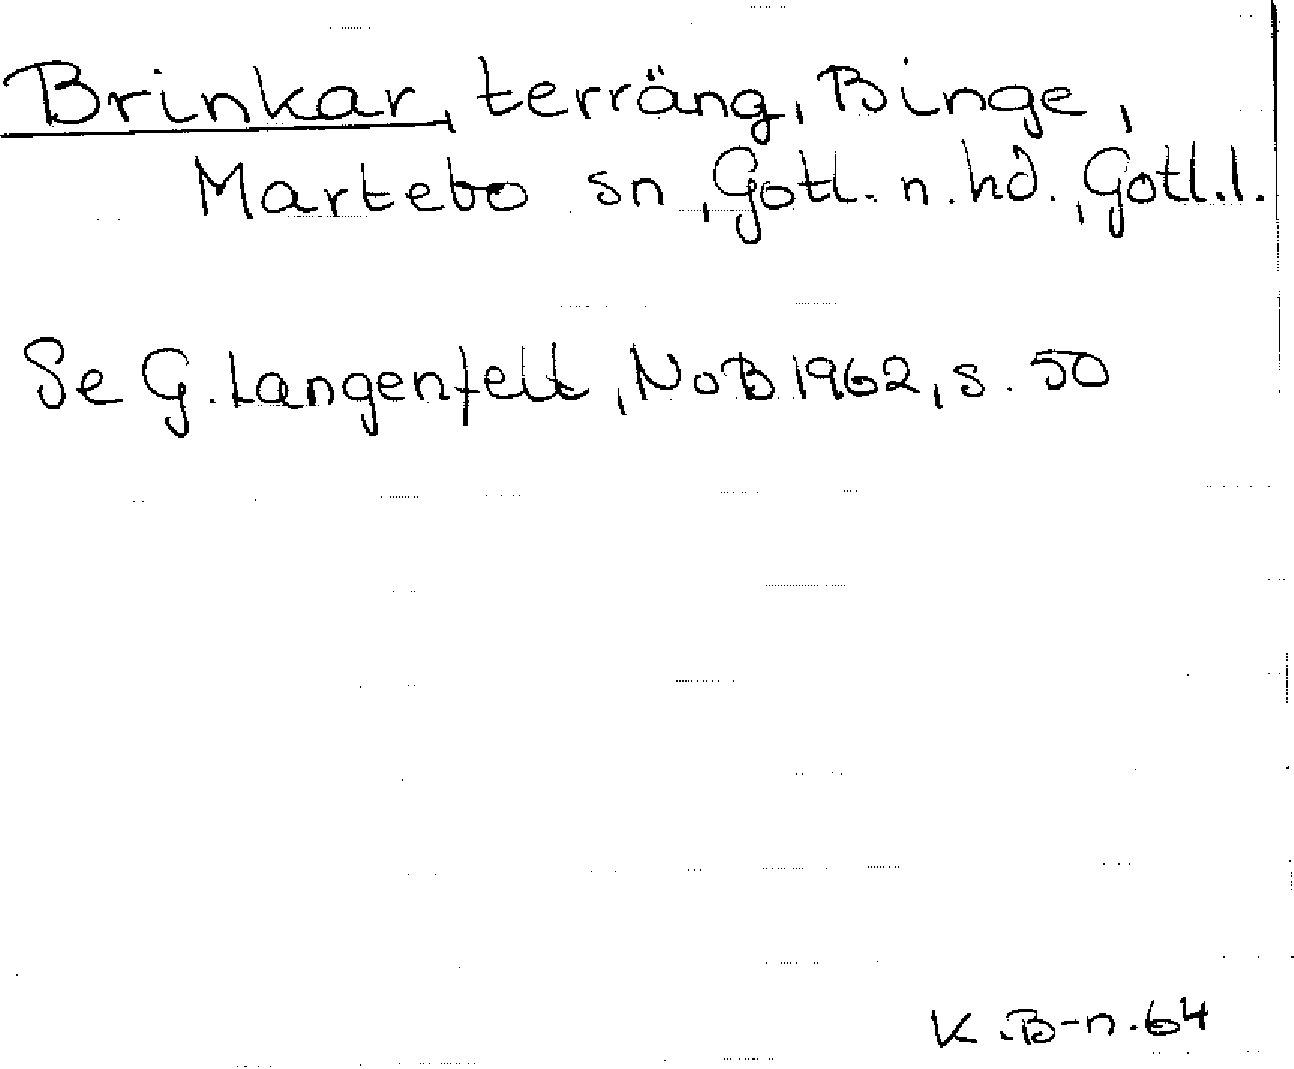 Brinkar, terräng, Binge,
Martebo sn, Gotl. n. hd., Gotl. l.
Se G. Langenfelt, NoB 1962, s. 50
K. B-n. 64